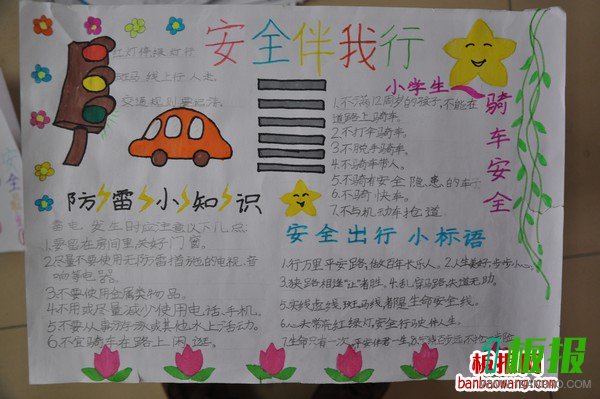 安全伴我行
红灯停绿灯行
斑马线上行人走
交通规则要记清
小学生
骑车安全
1.不满12周岁的孩子,不能在
道路上骑车。
2.不打伞骑车。
3.不脱手骑车。
4.不骑车带人。
5.不骑有安全隐患的车子
6.不骑快车。
7.不与机动车抢道
防雷小知识
雷电发生时应注意以下几点:
1.要留在房间里,关好门窗。
2.尽量不要使用无防雷措施的电视、音
响等电器。
3.不要使用金属类物品。
4.不用或尽量减少使用电话、手机。
5.不要从事游泳或其他水上活动。
6.不宜骑车在路上闲逛。
安全出行小标语
1.行万里平安路,做百年长乐人。2.人生美好,步步小心。
3.狭路相逢"让"者胜。4.乱穿马路,失道无助。
5.实线虚线斑马线都是生命安全线。
6.心头常亮红绿灯,安全行驶伴人生。
7.生命只有一次,平安伴君一生
板报网
www.banbaowang.com
板报